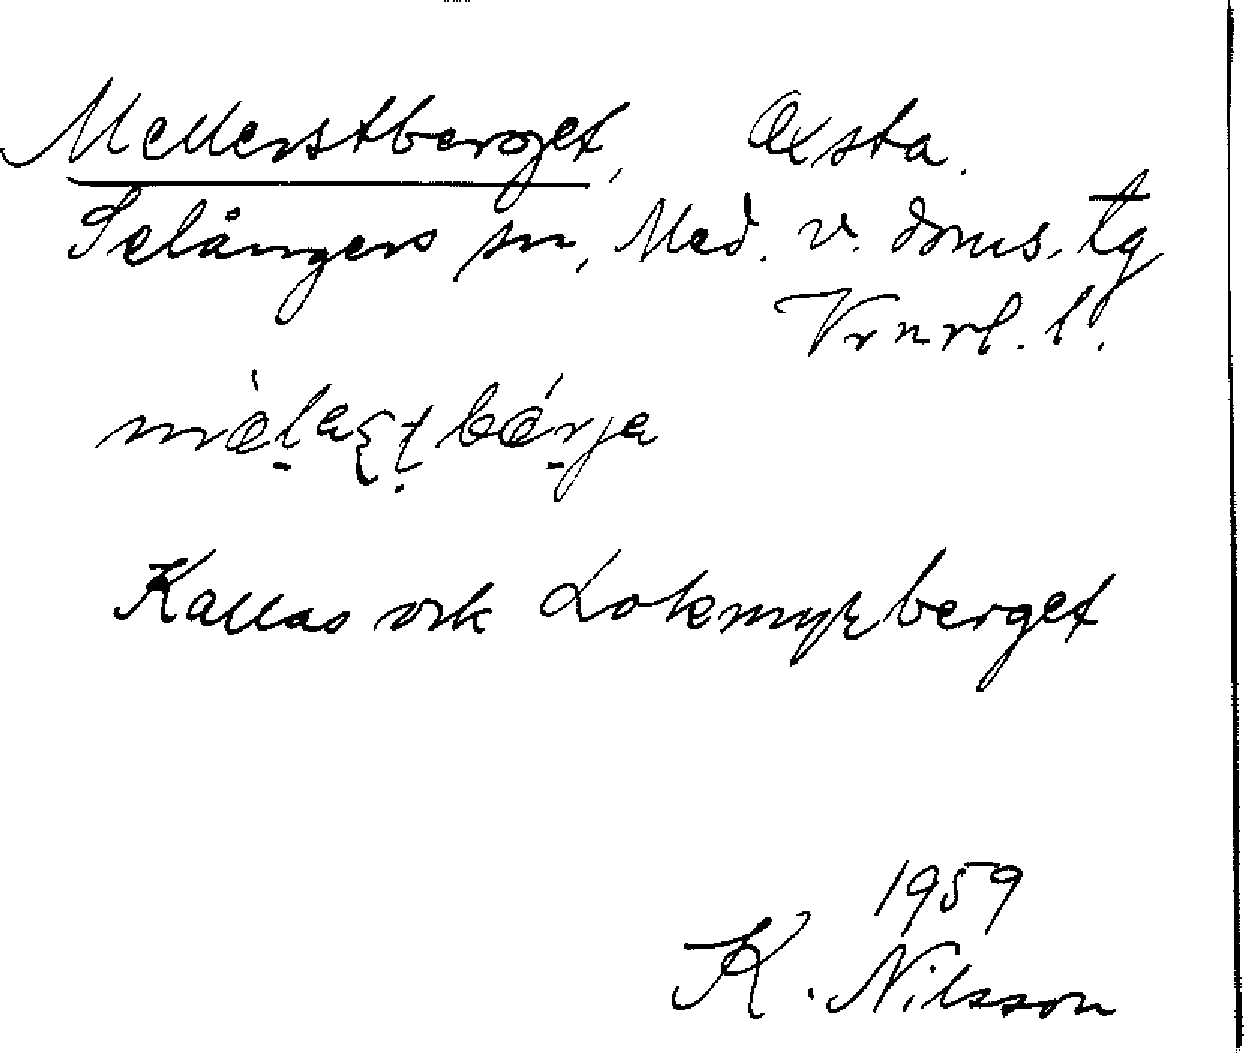 Mellerstberget, Œxsta.
Selångers sn, Med. v. doms. tg
Vrnrl. l.
Kallas ock Lokmyrberget
1959
K. Nilsson